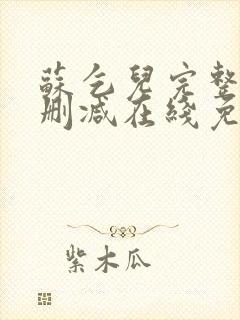 蘇乞兒完整
刪減在綫免
紫木瓜